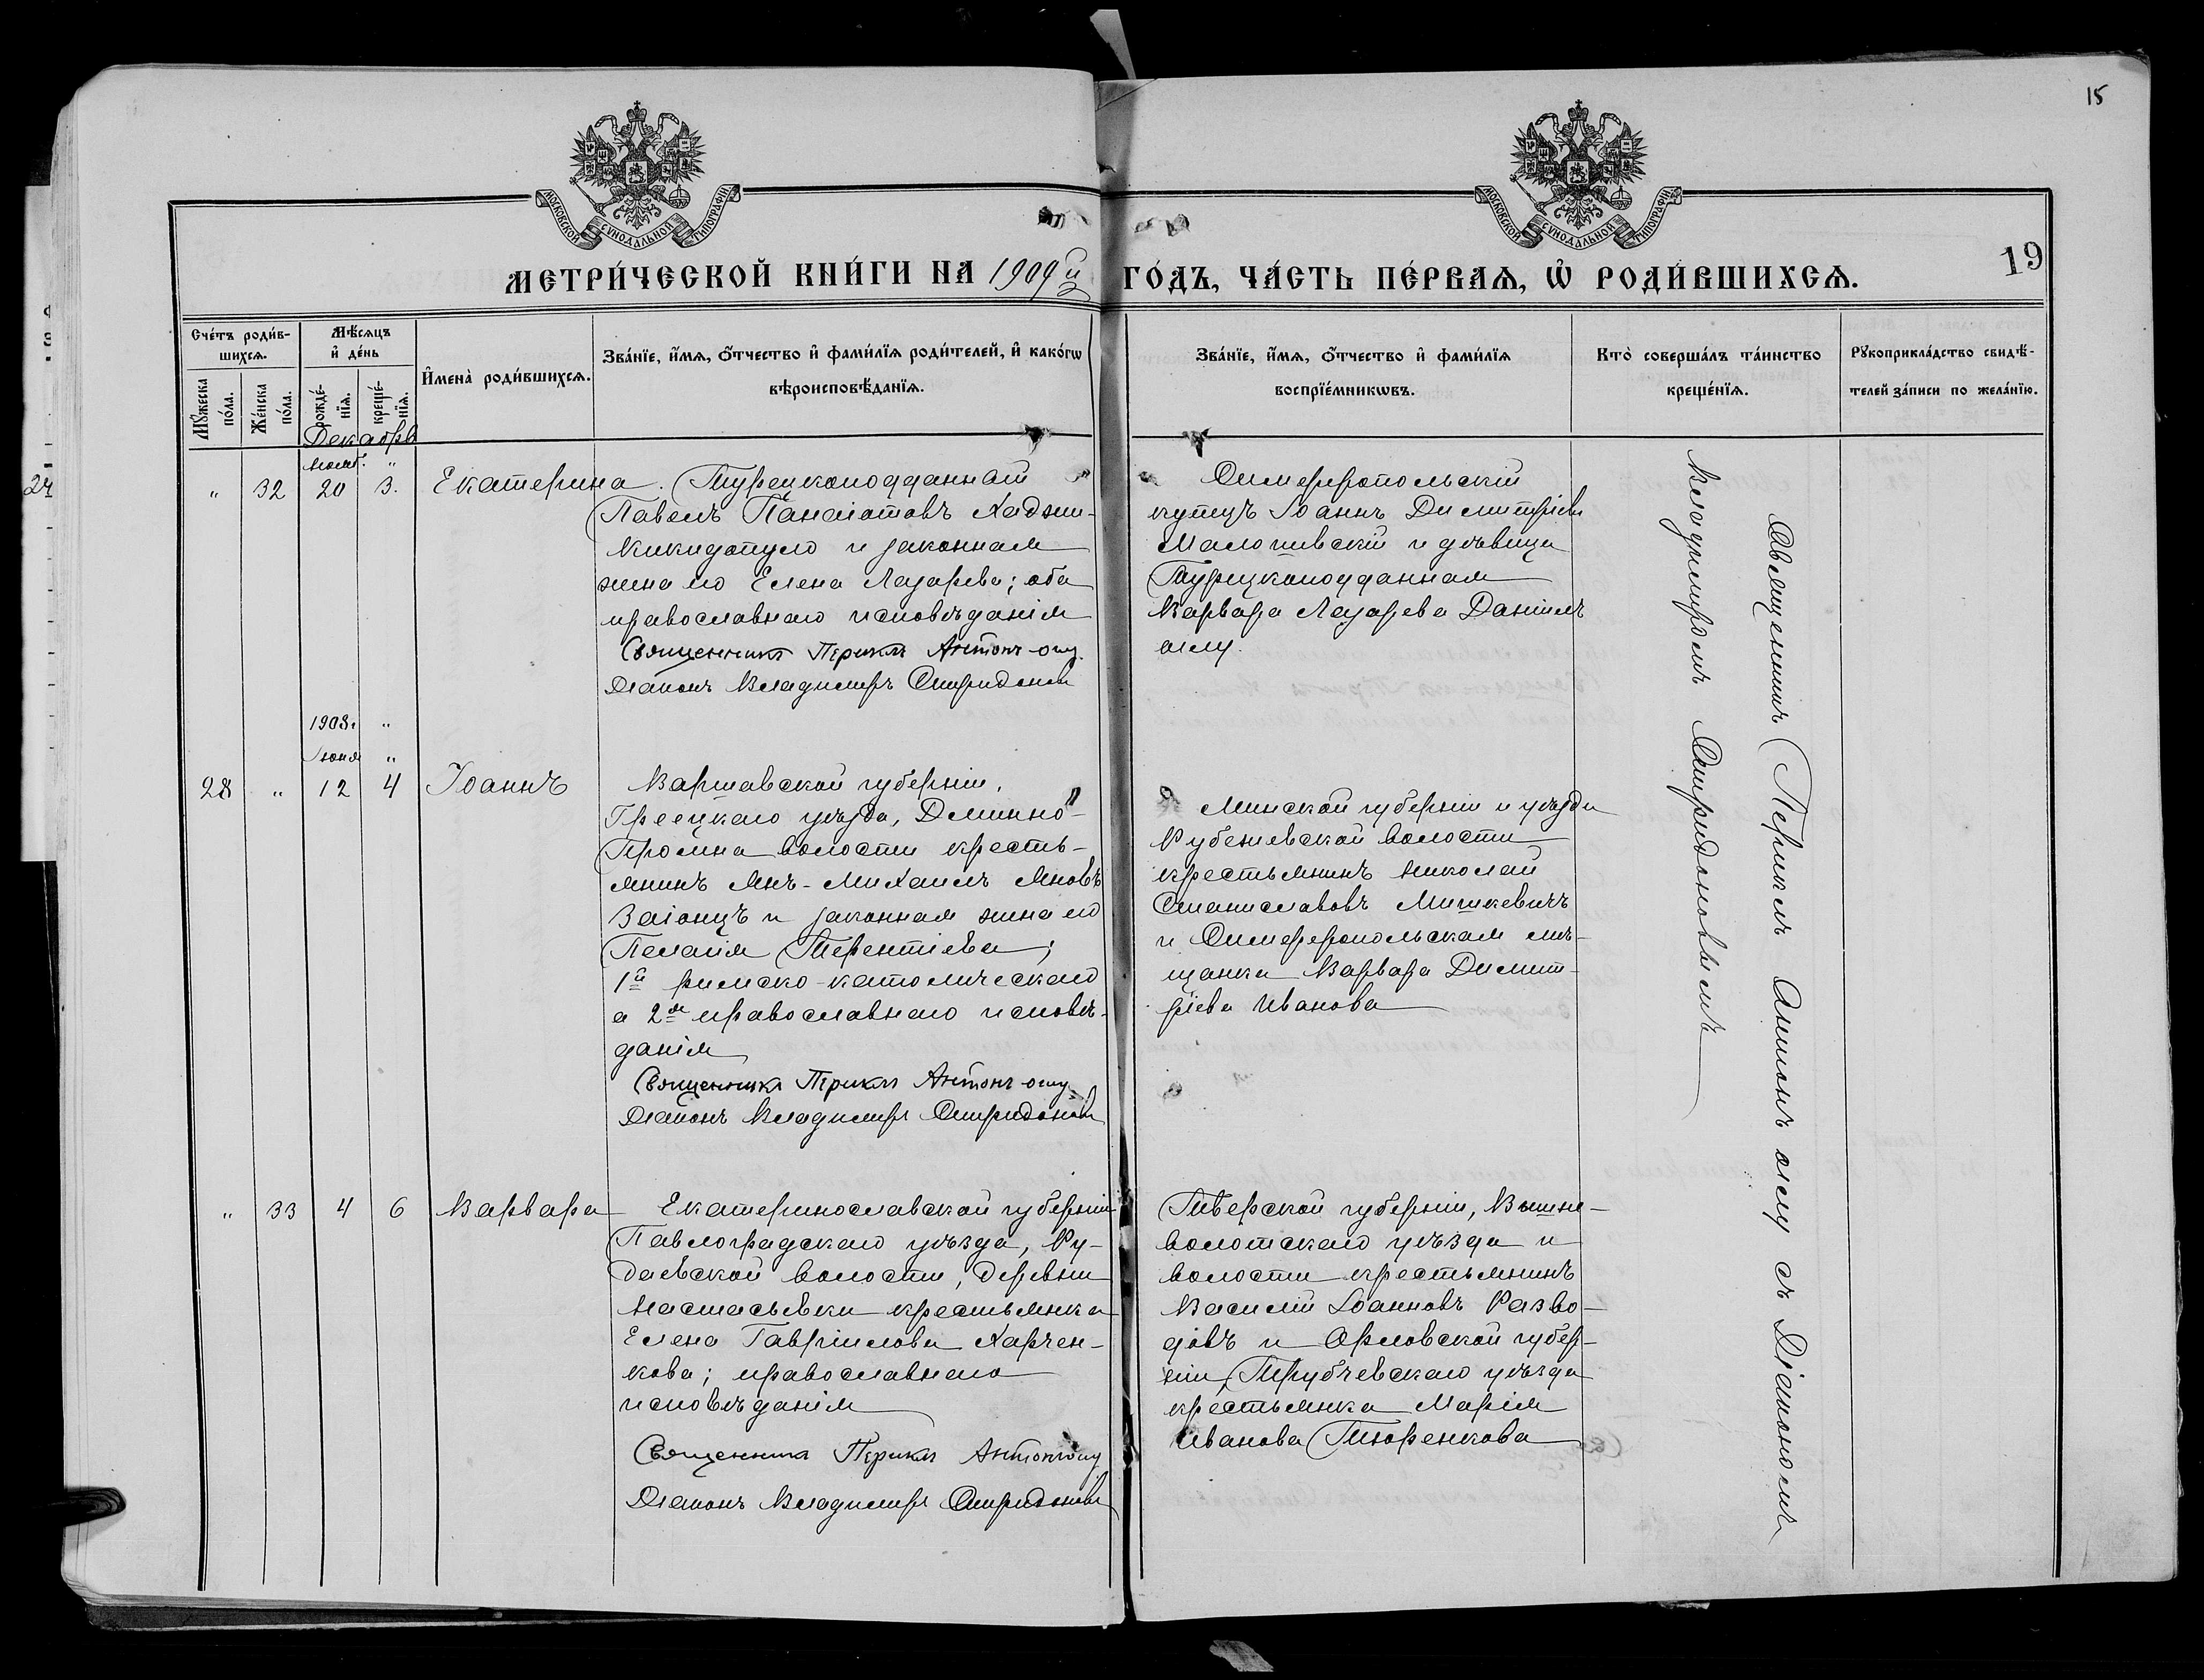 15
МОСКОВСКОЙ СѴНОДАЛЬНОЙ ТИПОГРАФІИ
МОСКОВСКОЙ СѴНОДАЛЬНОЙ ТИПОГРАФІИ
19
МЕТРИ́ЧЕСКОЙ КНИ́ГИ НА 1909й ГО́ДЪ, ЧА́СТЬ ПЕ́РВАЯ, Ѡ҆ РОДИ́ВШИХСЯ.
Сче́тъ роди́в-
шихся.
Мꙋ́жеска по́ла.
Же́нска по́ла.
Мѣ́сяцъ
и҆ де́нь
рожде́-
нїя.
креще́-
нїя.
И҆мена̀ роди́вшихся.
Зва́нїе, и҆́мя, ѻ҆́тчество и҆ фами́лїя роди́телей, и҆ како́гѡ
вѣроисповѣ́данїя.
Зва́нїе, и҆́мя, ѻ҆́тчество и҆ фами́лїя
воспрїе́мникѡвъ.
Кто̀ соверша́лъ та́инство
креще́нїя.
Рꙋкоприкла́дство свидѣ́-
телей за́писи по жела́нїю.
Декабрь
Нояб. "
24
" 32 20 3. Екатерина.
Турецкоподданный
Павелъ Панаіотовъ Хаджи-
Кикидопуло и законная
жена его Елена Лазарева; оба
православнаго исповѣданія
Священникъ Периклъ Антонъ-оглу
Діаконъ Владимиръ Спиридонов
Симферопольскій
купецъ Іоаннъ Димитріев
Малошевскій и дѣвица
Турецкоподданная
Варвара Лазарева Даніилъ
оглу.
1908г "
Іюня "
28 " 12 4 Іоаннъ
Варшавской губерніи,
Гроецкаго уѣзда,
волости кресть-
янинъ Янъ-Михаилъ Яновъ
Заіонцъ и законная жена его
Пелагія Терентіева;
1й римско-католическаго
а 2ая православнаго исповѣ-
данія
Священникъ Периклъ Антонъ-оглу
Діаконъ Владимиръ Спиридонов
Минской губерніи и уѣзда
волости
крестьянинъ Николай
Станиславовъ Мишкевичъ
и Симферопольская мѣ-
щанка Варвара Димит-
ріева Иванова
" 33 4 6 Варвара
Екатеринославской губерніи
Павлоградскаго уѣзда,
волости, деревни
Настасьевки крестьянка
Елена Гавріилова Харчен-
кова; православнаго
исповѣданія
Священникъ Периклъ Антонъ-оглу
Діаконъ Владимиръ Спиридонов
Тверской губерніи, Вышне-
волотскаго уѣзда и
волости крестьянинъ
Василій Іоанновъ Разво-
довъ и Орловской губер-
ніи, Трубчевскаго уѣзда
крестьянка Марія
Иванова Тюренкова
Священникъ Периклъ Антонъ оглу съ Діакономъ
Владимиромъ Спиридоновымъ